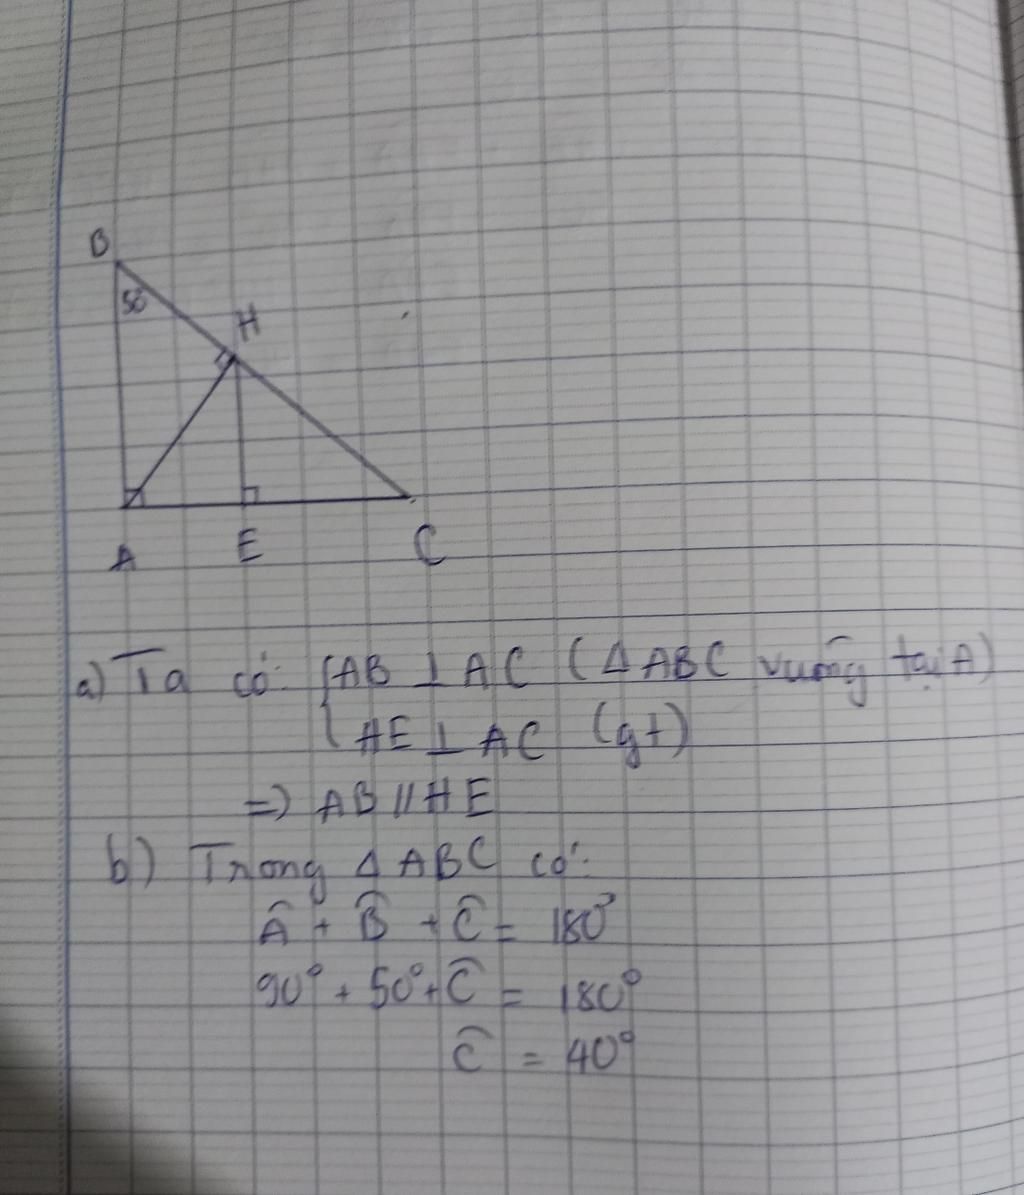 B
50
H
A E C
a) Ta có: { AB ⊥ AC ( Δ ABC vuông tại A)
{ HE ⊥ AC (gt)
=> AB // HE
b) Trong Δ ABC có:
Â + B̂ + Ĉ = 180°
90° + 50° + Ĉ = 180°
Ĉ = 40°